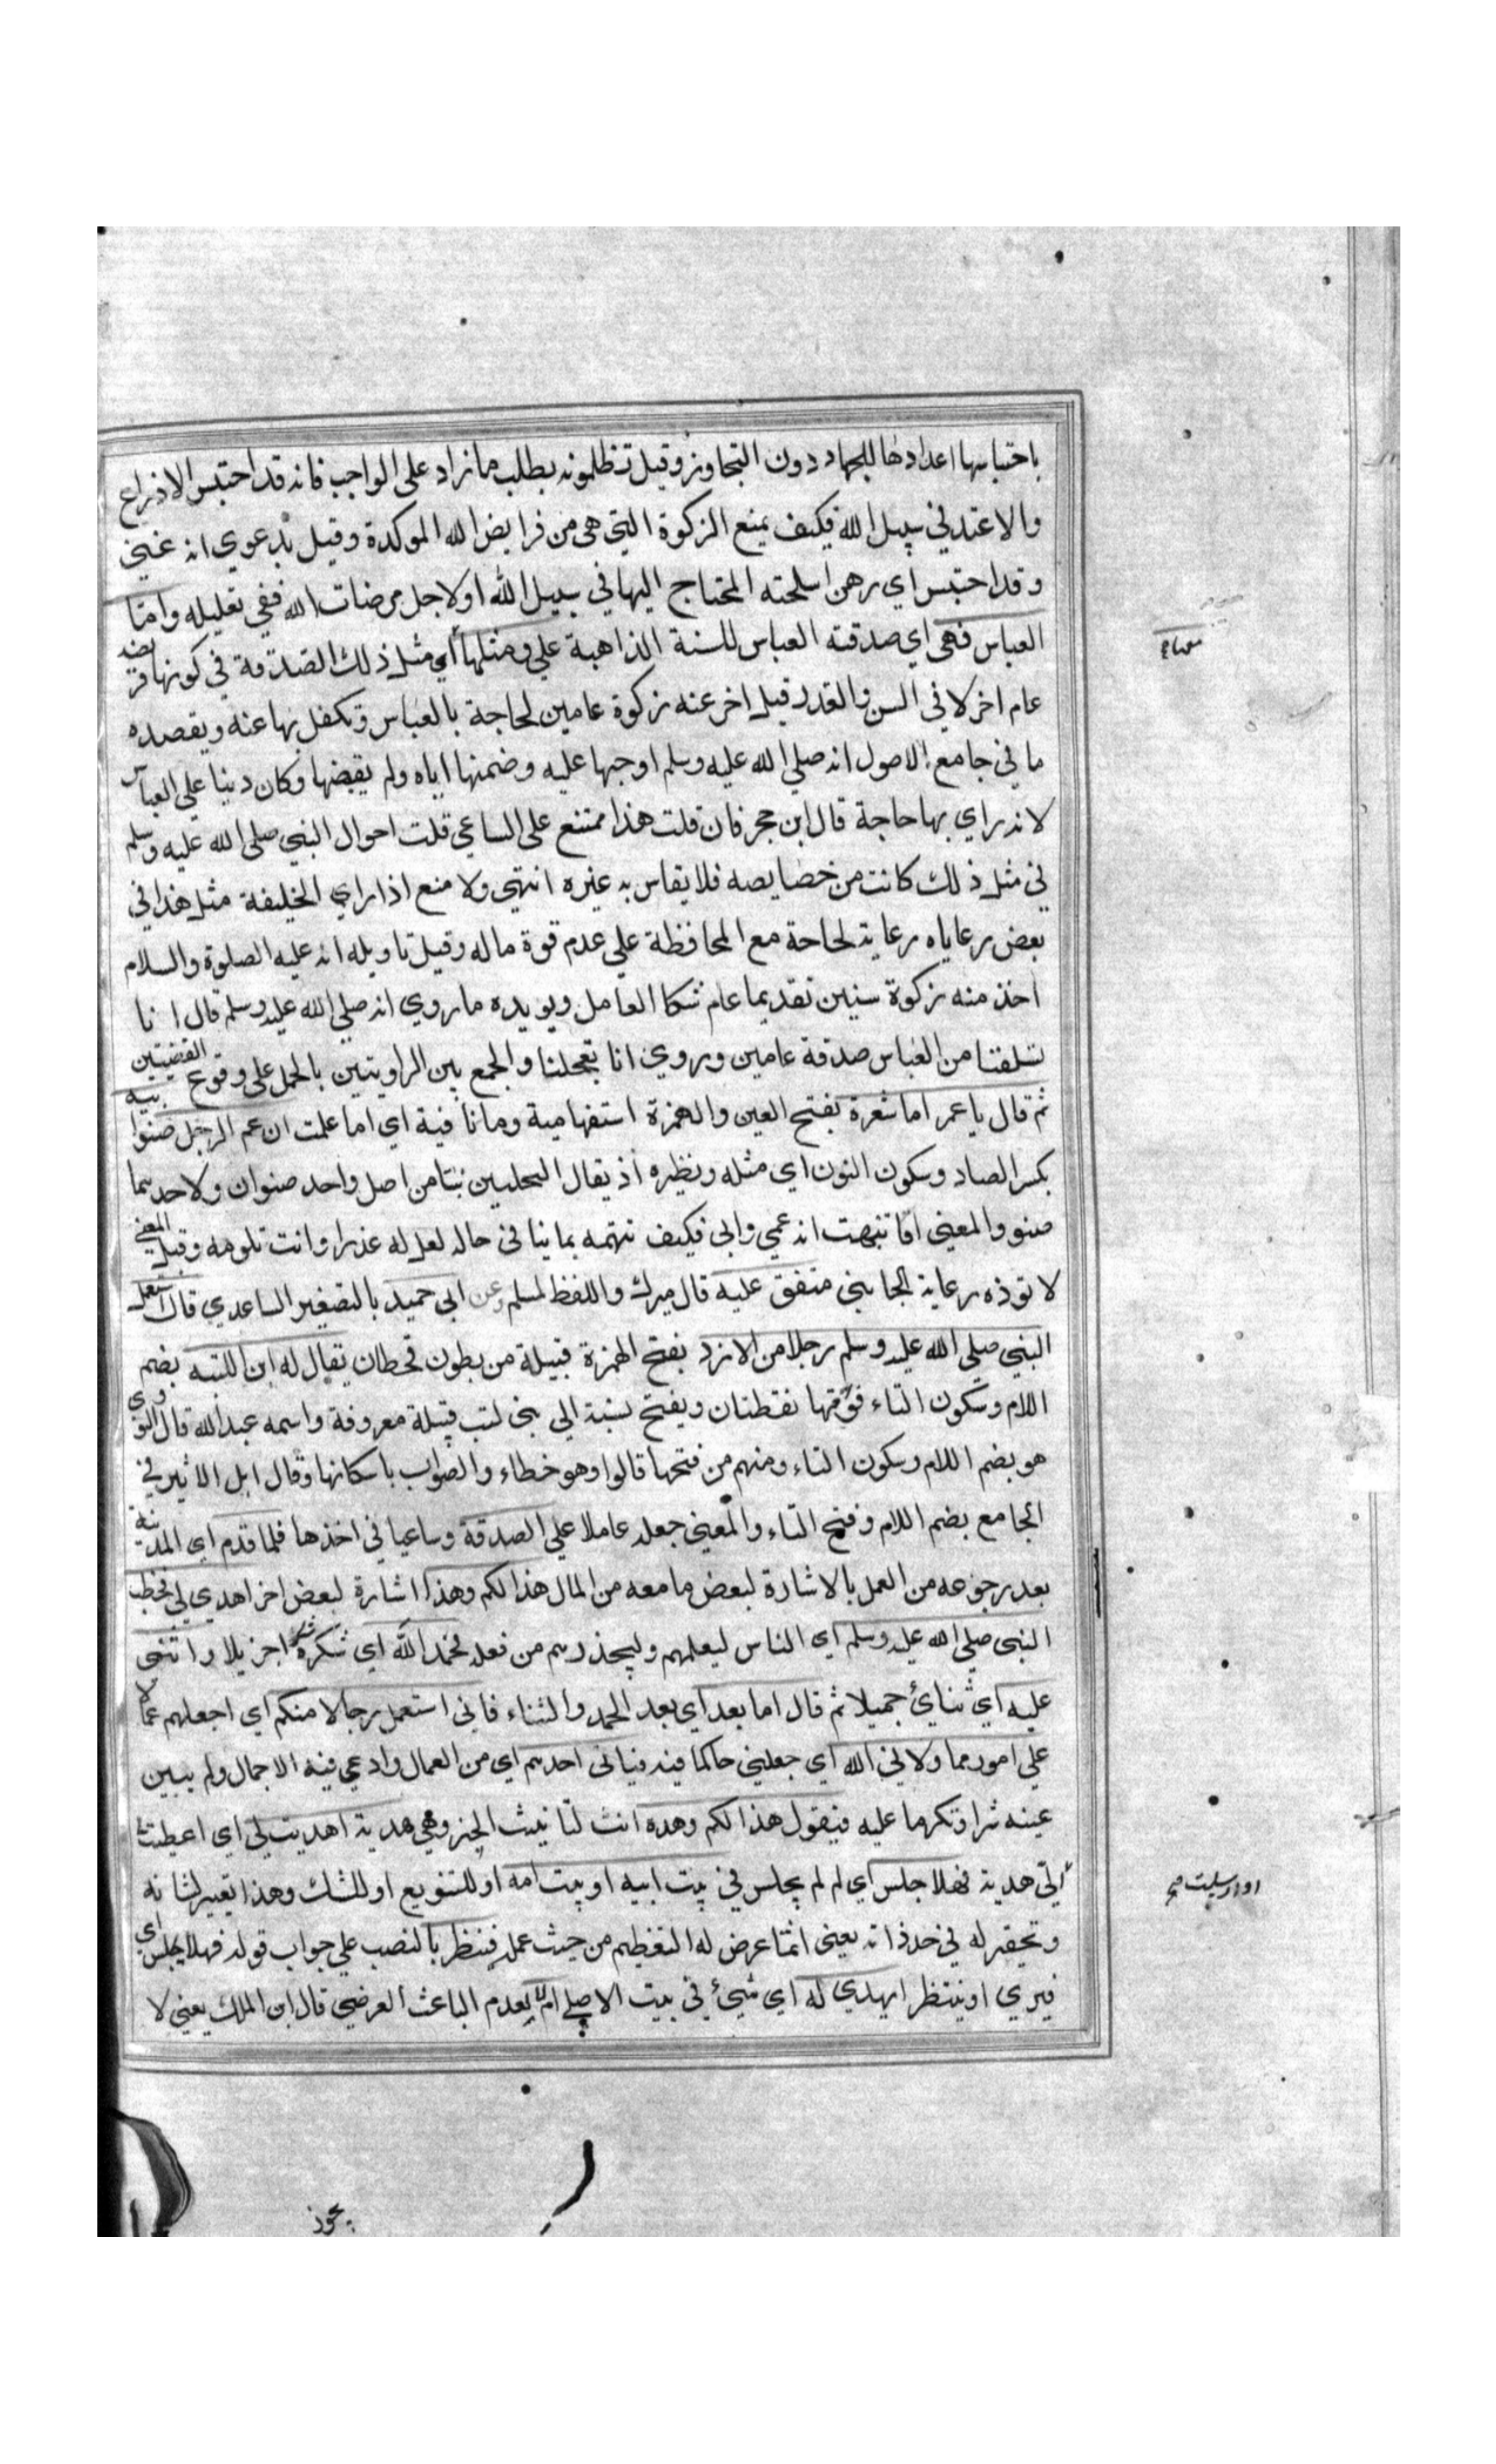 باحتباسها اعدادها للجهاد دون التجاوز وقيل تظلمونه بطلب ما زاد على الواجب فانه قد احتبس الاذراع
والاعتد في سبيل الله فكيف يمنع الزكوة التي هي من فرايض الله الموكدة وقيل بدعوي انه غني
وقد احتبس اي رهن اسلحته المحتاج اليها في سبيل الله او لاجل مرضات الله ففي تعليله واما
العباس فهي اي صدقته العباس للسنة الذاهبة علي ومثلها اي مثل ذلك الصدقة في كونها فريضة
عام اخر لا في السن والقدر قيل اخر عنه زكوة عامين لحاجة بالعباس وتكفل بها عنه ويقصده
ما في جامع الاصول انه صلي الله عليه وسلم اوجبها عليه وضمنها اياه ولم يقبضها وكان دينا علي العباس
لانه راي بها حاجة قال ابن حجر فان قلت هذا ممتنع على الساعي قلت احوال النبي صلى الله عليه وسلم
في مثل ذلك كانت من خصايصه فلا يقاس به غيره انتهي ولا منع اذا راي الخليفة مثل هذا في
بعض رعاياه رعاية لحاجة مع المحافظة علي عدم قوة ماله وقيل تاويله انه عليه الصلوة والسلام
اخذ منه زكوة سنين تقديما عام شكا العامل ويويده ما روي انه صلي الله عليه وسلم قال انا
تسلفنا من العباس صدقة عامين وروي انا تعجلنا والجمع بين الراويتين بالحمل على وقوع القضيتين
ثم قال يا عمر اما شعرة بفتح العين والهمزة استفهامية وما نافية اي اما علمت ان عم الرجل صنو ابيه
بكسر الصاد وسكون النون اي مثله ونظيره اذ يقال النخلتين نبتا من اصل واحد صنوان ولاحدهما
صنو والمعني اما تنبهت انه عمي وابي فكيف تتهمه بما ينافي حاله لعل له عذرا وانت تلومه وقيل المعني
لا توذه رعاية لجانبي متفق عليه قال ميرك واللفظ لمسلم وعن ابي حميد بالتصغير الساعدي قال استعمل
النبي صلي الله عليه وسلم رجلا من الازد بفتح الهمزة قبيلة من بطون قحطان يقال له ابن اللتبيه بضم
اللام وسكون التاء فوقها نقطتان ويفتح نسبة الي بني لتب قبيلة معروفة واسمه عبد الله قال النووي
هو بضم اللام وسكون التاء ومنهم من فتحها قالوا وهو خطاء والصواب باسكانها وقال ابن الاثير في
الجامع بضم اللام وفتح التاء والمعني جعله عاملا علي الصدقة وساعيا في اخذها فلما قدم اي المدينة
بعد رجوعه من العمل بالاشارة لبعض ما معه من المال هذا لكم وهذا اشارة لبعض اخر اهدي لي فخطب
النبي صلي الله عليه وسلم اي الناس ليعلمهم وليحذرهم من فعله فحمد الله اي شكره شكرا جزيلا واثني
عليه اي ثنايئ جميلا ثم قال اما بعد اي بعد الحمد والثناء فاني استعمل رجالا منكم اي اجعلهم عمالا
علي امور مما ولاني الله اي جعلني حاكما فيه فياتي احدهم اي من العمال وادعي فيه الاجمال ولم يبين
عينه سترا وتكرما عليه فيقول هذا لكم وهذه انث لتانيث الخبر وهي هدية اهديت لي اي اعطيت
الي هدية فهلا جلس اي لم لم يجلس في بيت ابيه او بيت امه او للتنويع او للشك وهذا تعيير لشانه
وتحقير له في حد ذاته يعني انما عرض له التعظيم من حيث عمله فينظر بالنصب علي جواب قوله فهلا يجلس اي
فيري او ينتظر ايهدي له اي شيئ في بيت الاصلي ام لا لعدم الباعث العرضي قال ابن الملك يعني لا
او ارسلت صح
يجوز